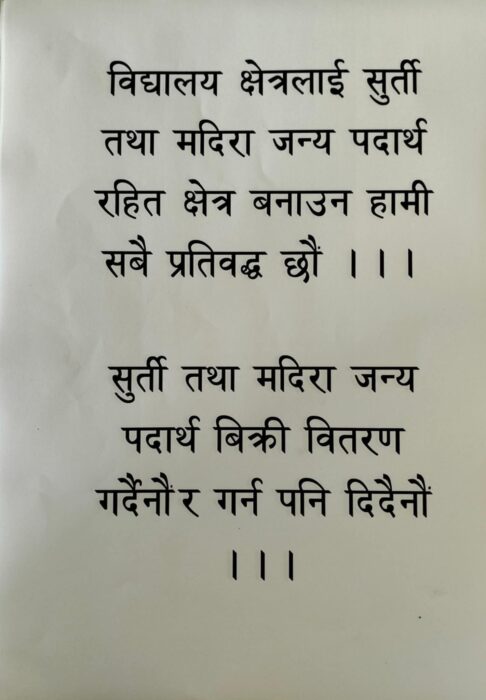 विद्यालय क्षेत्रलाई सुर्ती
तथा मदिरा जन्य पदार्थ
रहित क्षेत्र बनाउन हामी
सबै प्रतिवद्ध छौं ।।।
सुर्ती तथा मदिरा जन्य
पदार्थ बिक्री वितरण
गर्दैनौं र गर्न पनि दिदैनौं
।।।